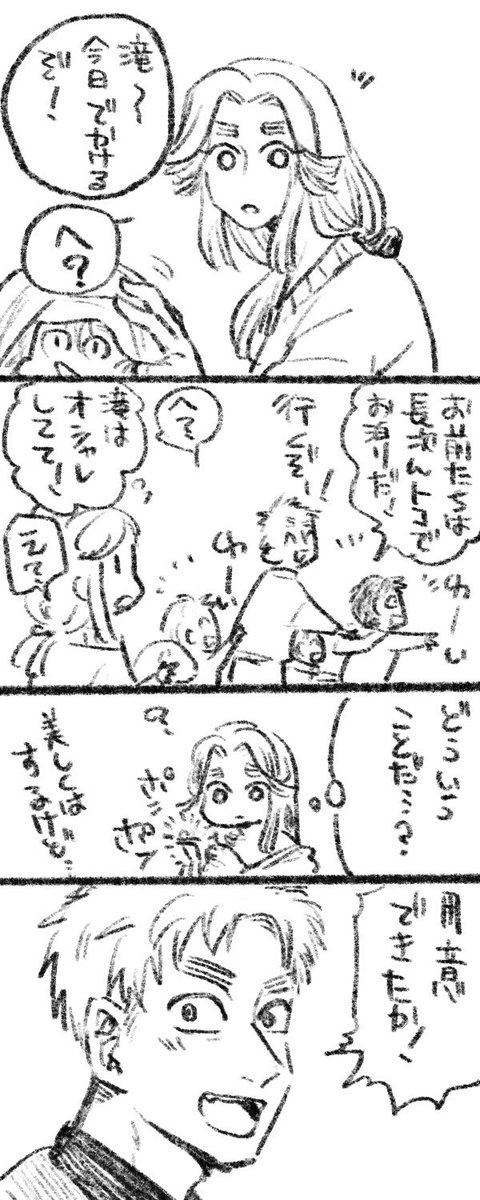 滝〜
今日でかける
ぞ！
へ？
お前たちは
長次んトコで
お泊りだ！
わーい
行くぞー！
わーい
へ？
滝は
オシャレ
してて！
えて？
どういう
ことだ…？
？
ポン
ポン
美しくは
するけど…
用意
できたか！